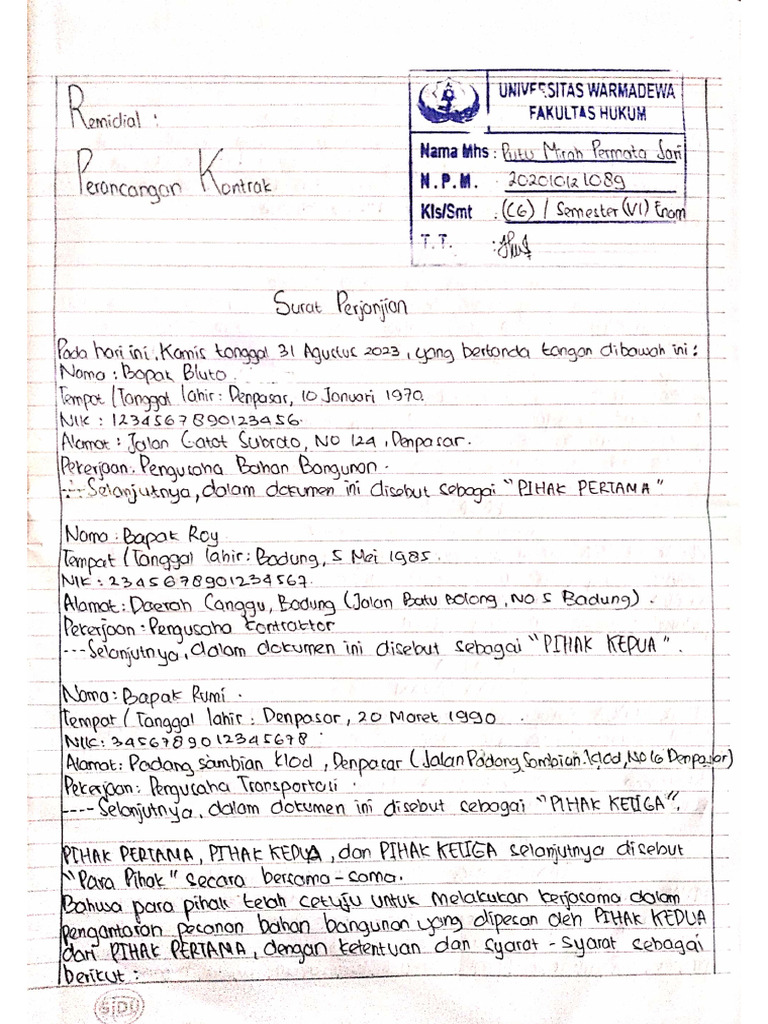 Remidial :
Perancangan Kontrak
UNIVERSITAS WARMADEWA
FAKULTAS HUKUM
Nama Mhs : Putu Mirah Permata Sari
N.P.M. 202010121089
Kls/Smt : (C6) / Semester (VI) Enam
T.T. :
Surat Perjanjian
Pada hari ini, Kamis tanggal 31 Agustus 2023, yang bertanda tangan dibawah ini :
Nama : Bapak Bluto
Tempat / Tanggal lahir : Denpasar, 10 Januari 1970.
NIK : 1234567890123456.
Alamat : Jalan Gatot Subroto, NO 124, Denpasar.
Pekerjaan : Pengusaha Bahan Bangunan.
--- Selanjutnya, dalam dokumen ini disebut sebagai "PIHAK PERTAMA"
Nama : Bapak Roy
Tempat / Tanggal lahir : Badung, 5 Mei 1985.
NIK : 2345678901234567.
Alamat : Daerah Canggu, Badung (Jalan Batu Bolong, NO 5 Badung).
Pekerjaan : Pengusaha Kontraktor
--- Selanjutnya, dalam dokumen ini disebut sebagai "PIHAK KEDUA".
Nama : Bapak Rumi.
Tempat / Tanggal lahir : Denpasar, 20 Maret 1990.
NIK : 3456789012345678.
Alamat : Padang sambian Klod, Denpasar (Jalan Padang Sambian Klod, NO 16 Denpasar)
Pekerjaan : Pengusaha Transportasi.
---- Selanjutnya, dalam dokumen ini disebut sebagai "PIHAK KETIGA".
PIHAK PERTAMA, PIHAK KEDUA, dan PIHAK KETIGA selanjutnya disebut
"Para Pihak" secara bersama-sama.
Bahwa para pihak telah cetuju untuk melakukan kerjasama dalam
pengantaran pesanan bahan bangunan yang dipesan oleh PIHAK KEDUA
dari PIHAK PERTAMA, dengan ketentuan dan syarat-syarat sebagai
berikut :
SIDU